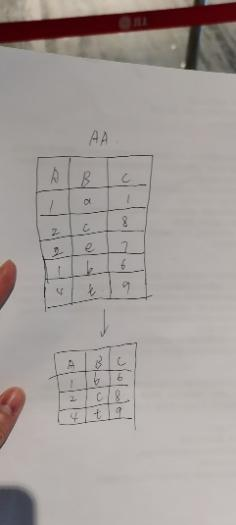 AA
A B C
1 a 1
2 c 8
2 e 7
1 b 6
4 t 9
A B C
1 b 6
2 c 8
4 t 9